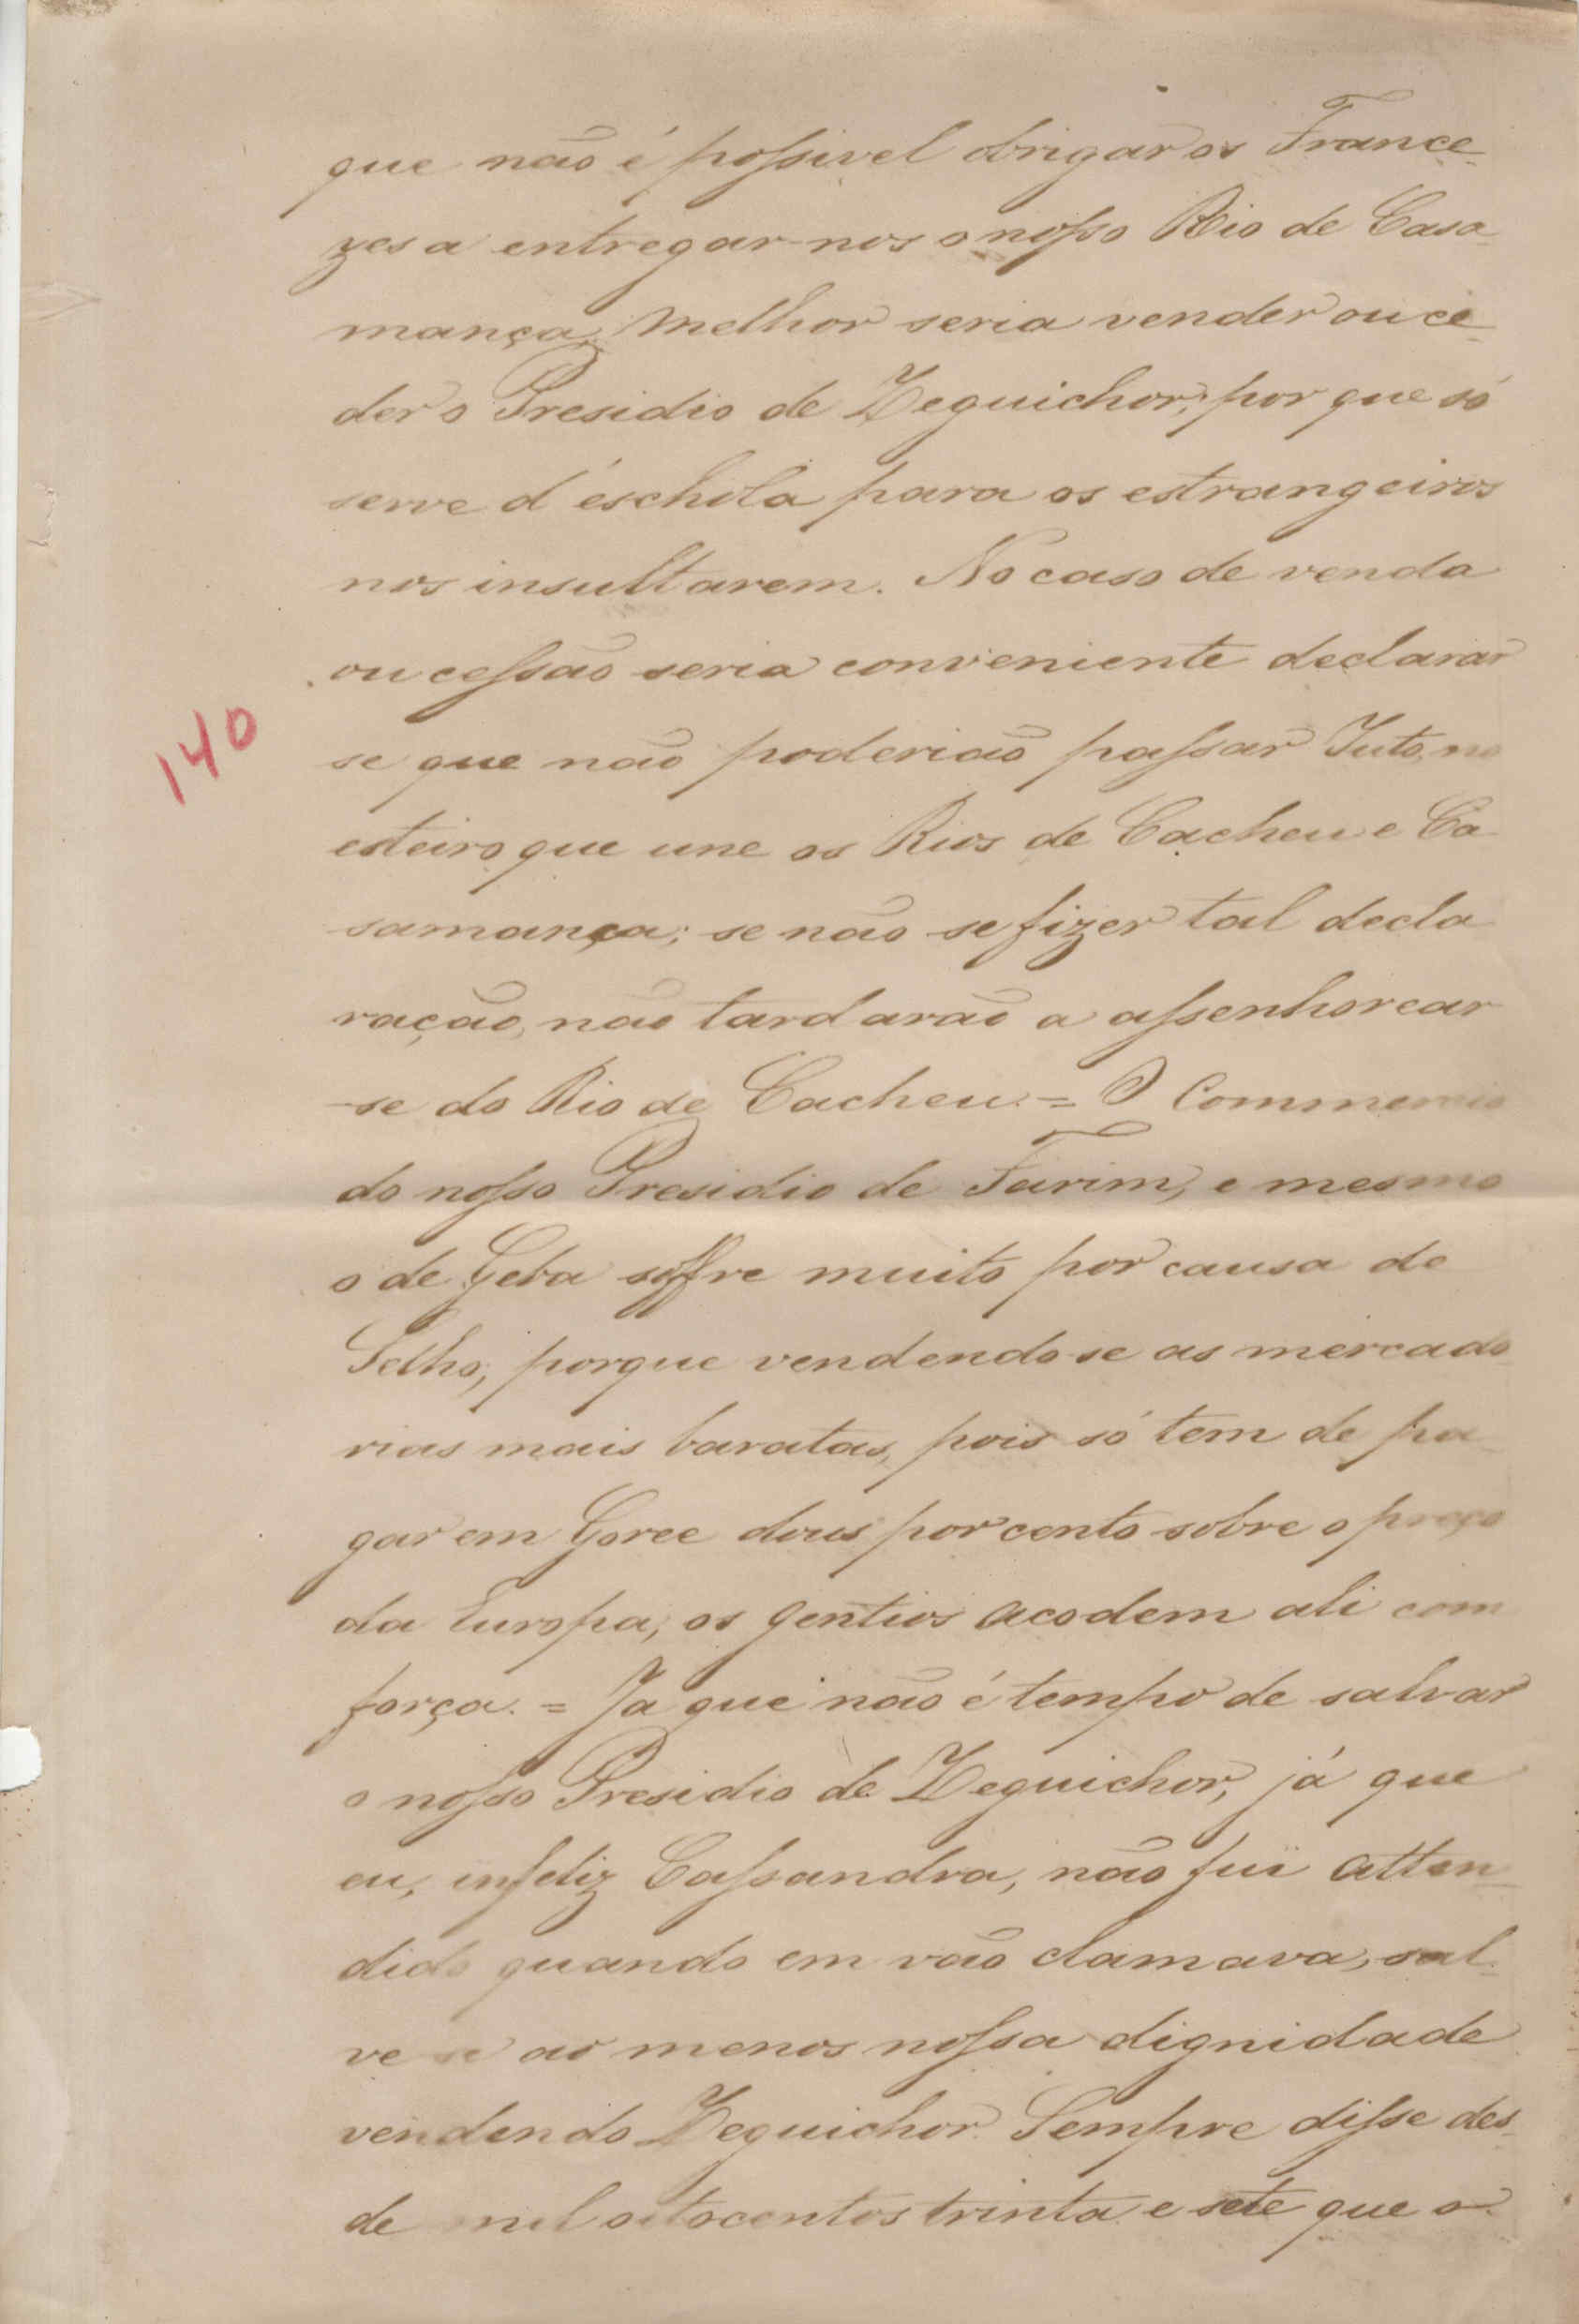 que não é possivel obrigar os France-
zes a entregar-nos o nosso Rio de Casa-
mança, melhor seria vender ou ce-
der o Presidio de Zeguichor, por que só
serve d'éschola para os estrangeiros
nos insultarem. No caso de venda
ou cessão seria conveniente declarar
se que não poderião passar Juto, no
esteiro que une os Rios de Cacheu e Ca-
samança; se não se fizer tal decla
ração, não tardarão a assenhorear
-se do Rio de Cacheu. = O Commercio
do nosso Presidio de Farim, e mesmo
o de Geba soffre muito por causa de
Selho, porque vendendo-se as mercado
rias mais baratas, pois só tem de pa-
gar em Goree dous por cento sobre o preço
da Europa, os gentios acodem ali com
força. = Ja que não é tempo de salvar
o nosso Presidio de Zeguichor, já que
eu, infeliz Cassandra, não fui atten-
dido quando em vão clamava, sal-
ve se ao menos nossa dignidade
vendendo Zeguichor. Sempre disse des-
de mil oitocentos trinta e sete que o
140